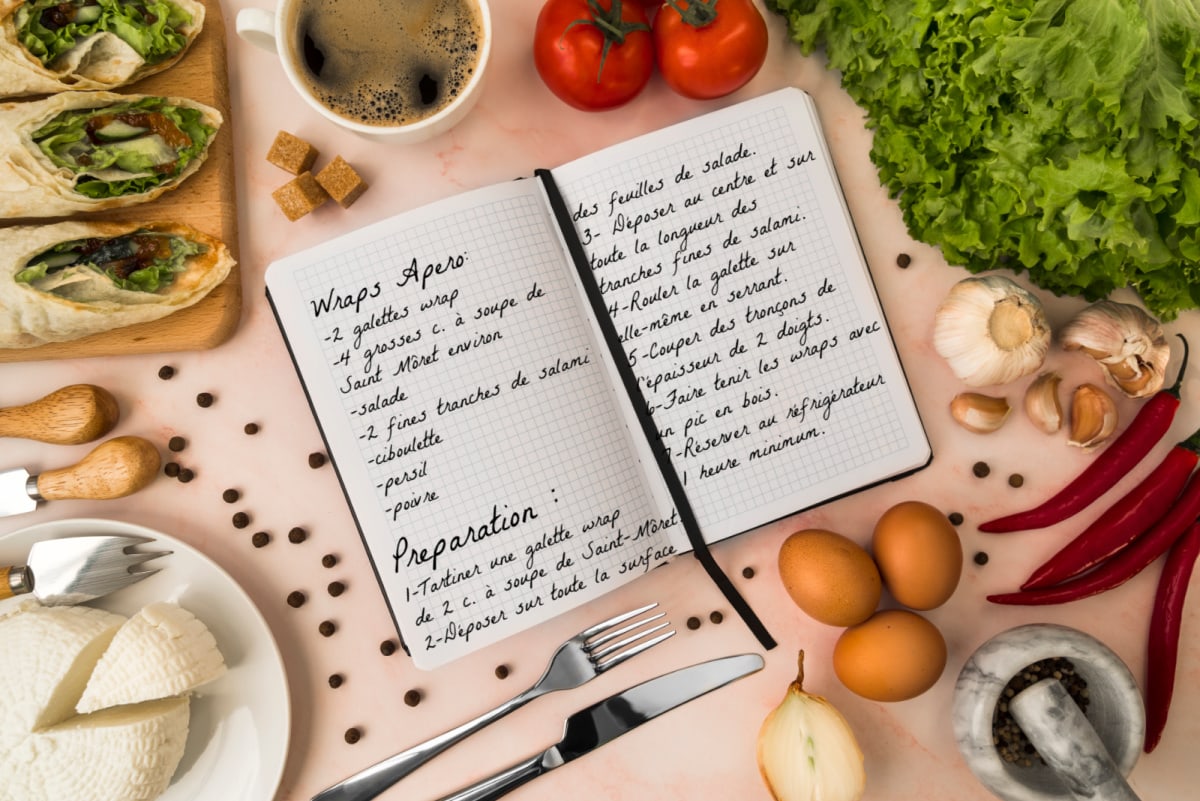 Wraps Apero:
-2 galettes wrap
-4 grosses c. à soupe de
Saint Môret environ
-salade
-2 fines tranches de salami
-ciboulette
-persil
-poivre
Preparation :
1-Tartiner une galette wrap
de 2 c. à soupe de Saint-Môret.
2-Déposer sur toute la surface
des feuilles de salade.
3- Déposer au centre et sur
toute la longueur des
tranches fines de salami.
4-Rouler la galette sur
elle-même en serrant.
5-Couper des tronçons de
l'épaisseur de 2 doigts.
6-Faire tenir les wraps avec
un pic en bois.
7-Réserver au réfrigérateur
1 heure minimum.